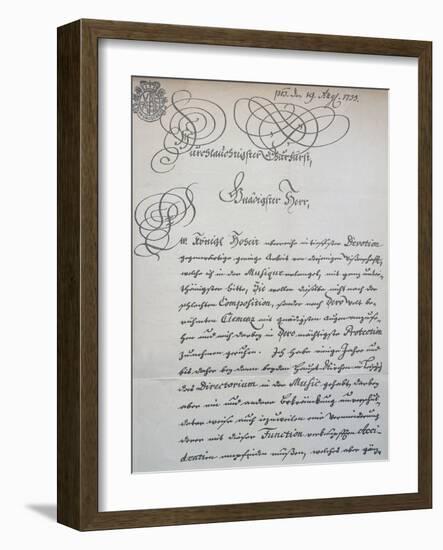 den 19. Aug. 1733.
Durchlauchtigster Churfürst,
Gnädigster Herr,
Ew. Königl. Hoheit überreiche in tieffster Devotion
gegenwärtige geringe Arbeit von derjenigen Wißenschafft,
welche ich in der Musique erlanget, mit ganz unter-
thänigster Bitte, Sie wollen dieselbe nicht nach der
schlechten Composition, sondern nach Dero Welt be-
rühmten Clemenz mit gnädigsten Augen anzuse-
hen und mich darbey in Dero mächtigste Protection
zu nehmen geruhen. Ich habe einige Jahre und
bis daher bey denen beyden Haupt-Kirchen in Leipzig
das Directorium in der Music gehabt, darbey
aber ein und andere Bekränckung unverschul-
deter weise auch iezuweilen eine Verminderung
derer mit dieser Function verknüpfften Acci-
dentien empfinden müßen, welches aber gänz-